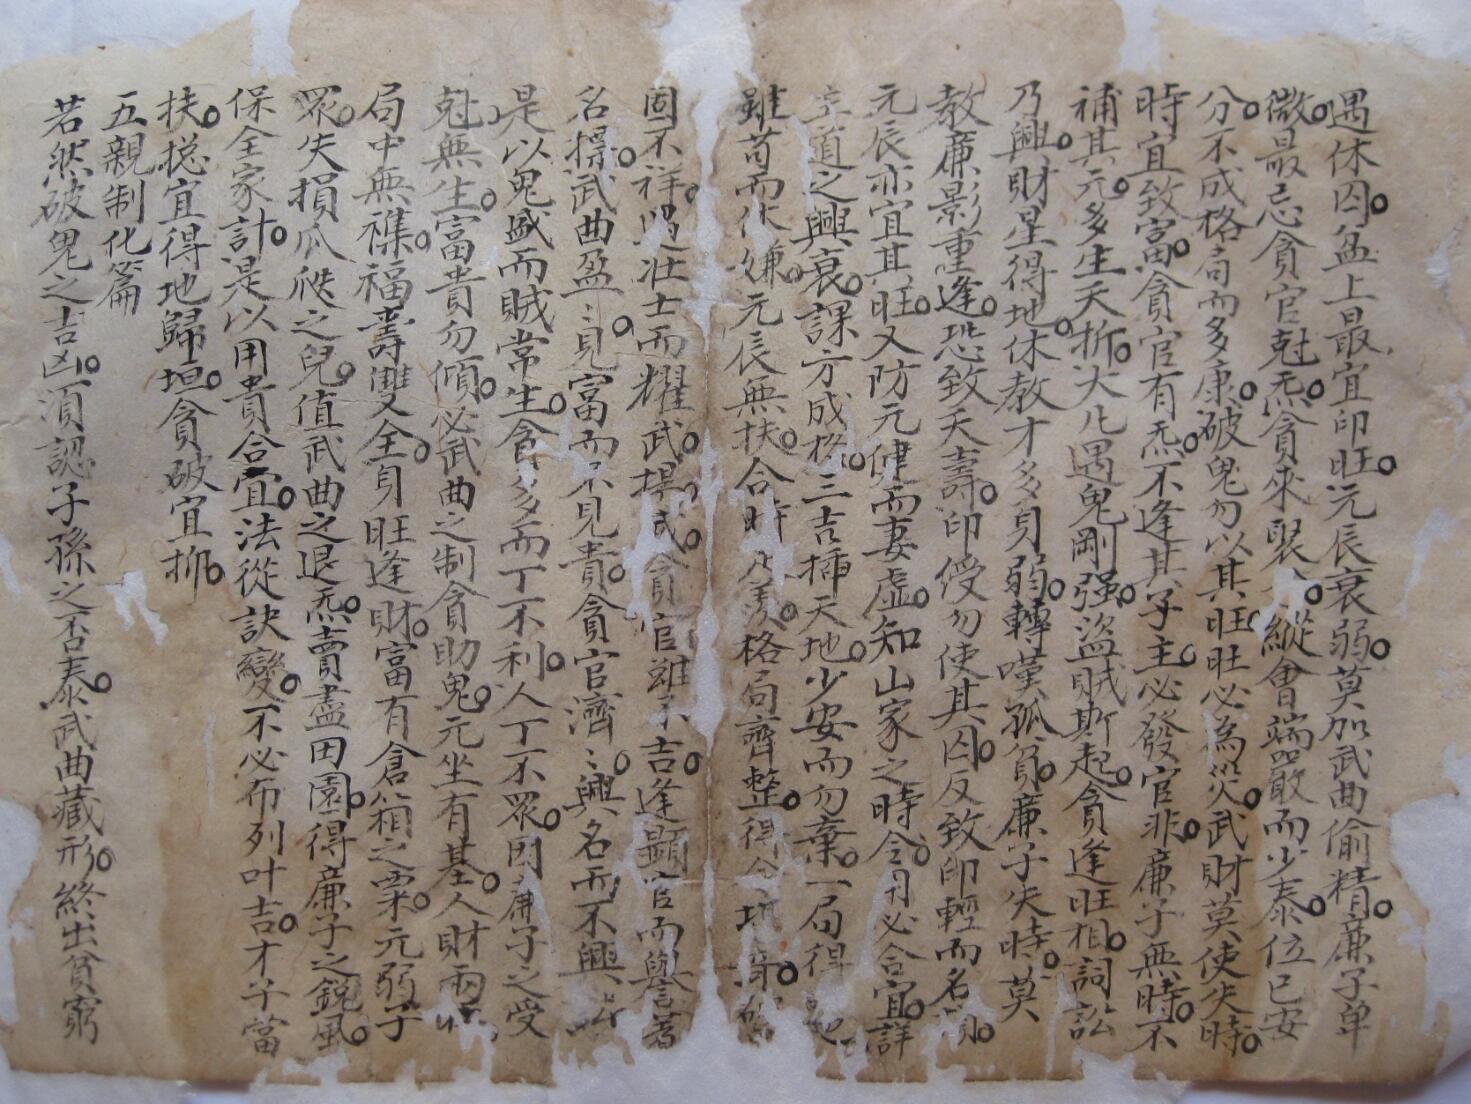 遇休囚盆上最宜印旺元辰衰弱莫加武曲偷精廉子卑
微最忌貪官尅炁貪來聚縱會端嚴而少泰位已安
分不成格局而多康破鬼勿以其旺旺必為災武財莫使失時
時宜致富貪官有炁不逢其子主必發官非廉子無時不
補其元多生夭折大凡遇鬼剛强盜賊斯起貪逢旺相詞訟
乃興財星得地休教才多身弱轉嘆孤貧廉子失時莫
教廉影重逢恐致夭壽印綬勿使其囚反致印輕而名
元辰亦宜其旺又防元健而妻虛知山家之時令用必合宜詳
立道之興衰課方成格三吉揷天地少安而勿棄一局得
雖苟而休嫌元辰無扶合時格局齊整得令
固不祥遇壯士而耀武揚貪官雖不吉逢顯官而譽著
名揚武曲盈〻見富而不見貴貪官濟〻興名而不興
是以鬼盛而賊常生食多而丁不利人丁不眾因廉子之受
尅無生富貴勿傾必武曲之制貪助鬼元坐有基人財兩
局中無襍福壽雙全身旺逢財富有倉箱之粟元弱子
眾失損爪爬之兒值武曲之退炁賣盡田園得廉子之銳風
保全家計是以用貴合宜法從訣變不必布列叶吉才子當
扶搃宜得地歸垣貪破宜抑
五親制化篇
若然破鬼之吉凶須認子孫之否泰武曲藏形終出貧窮